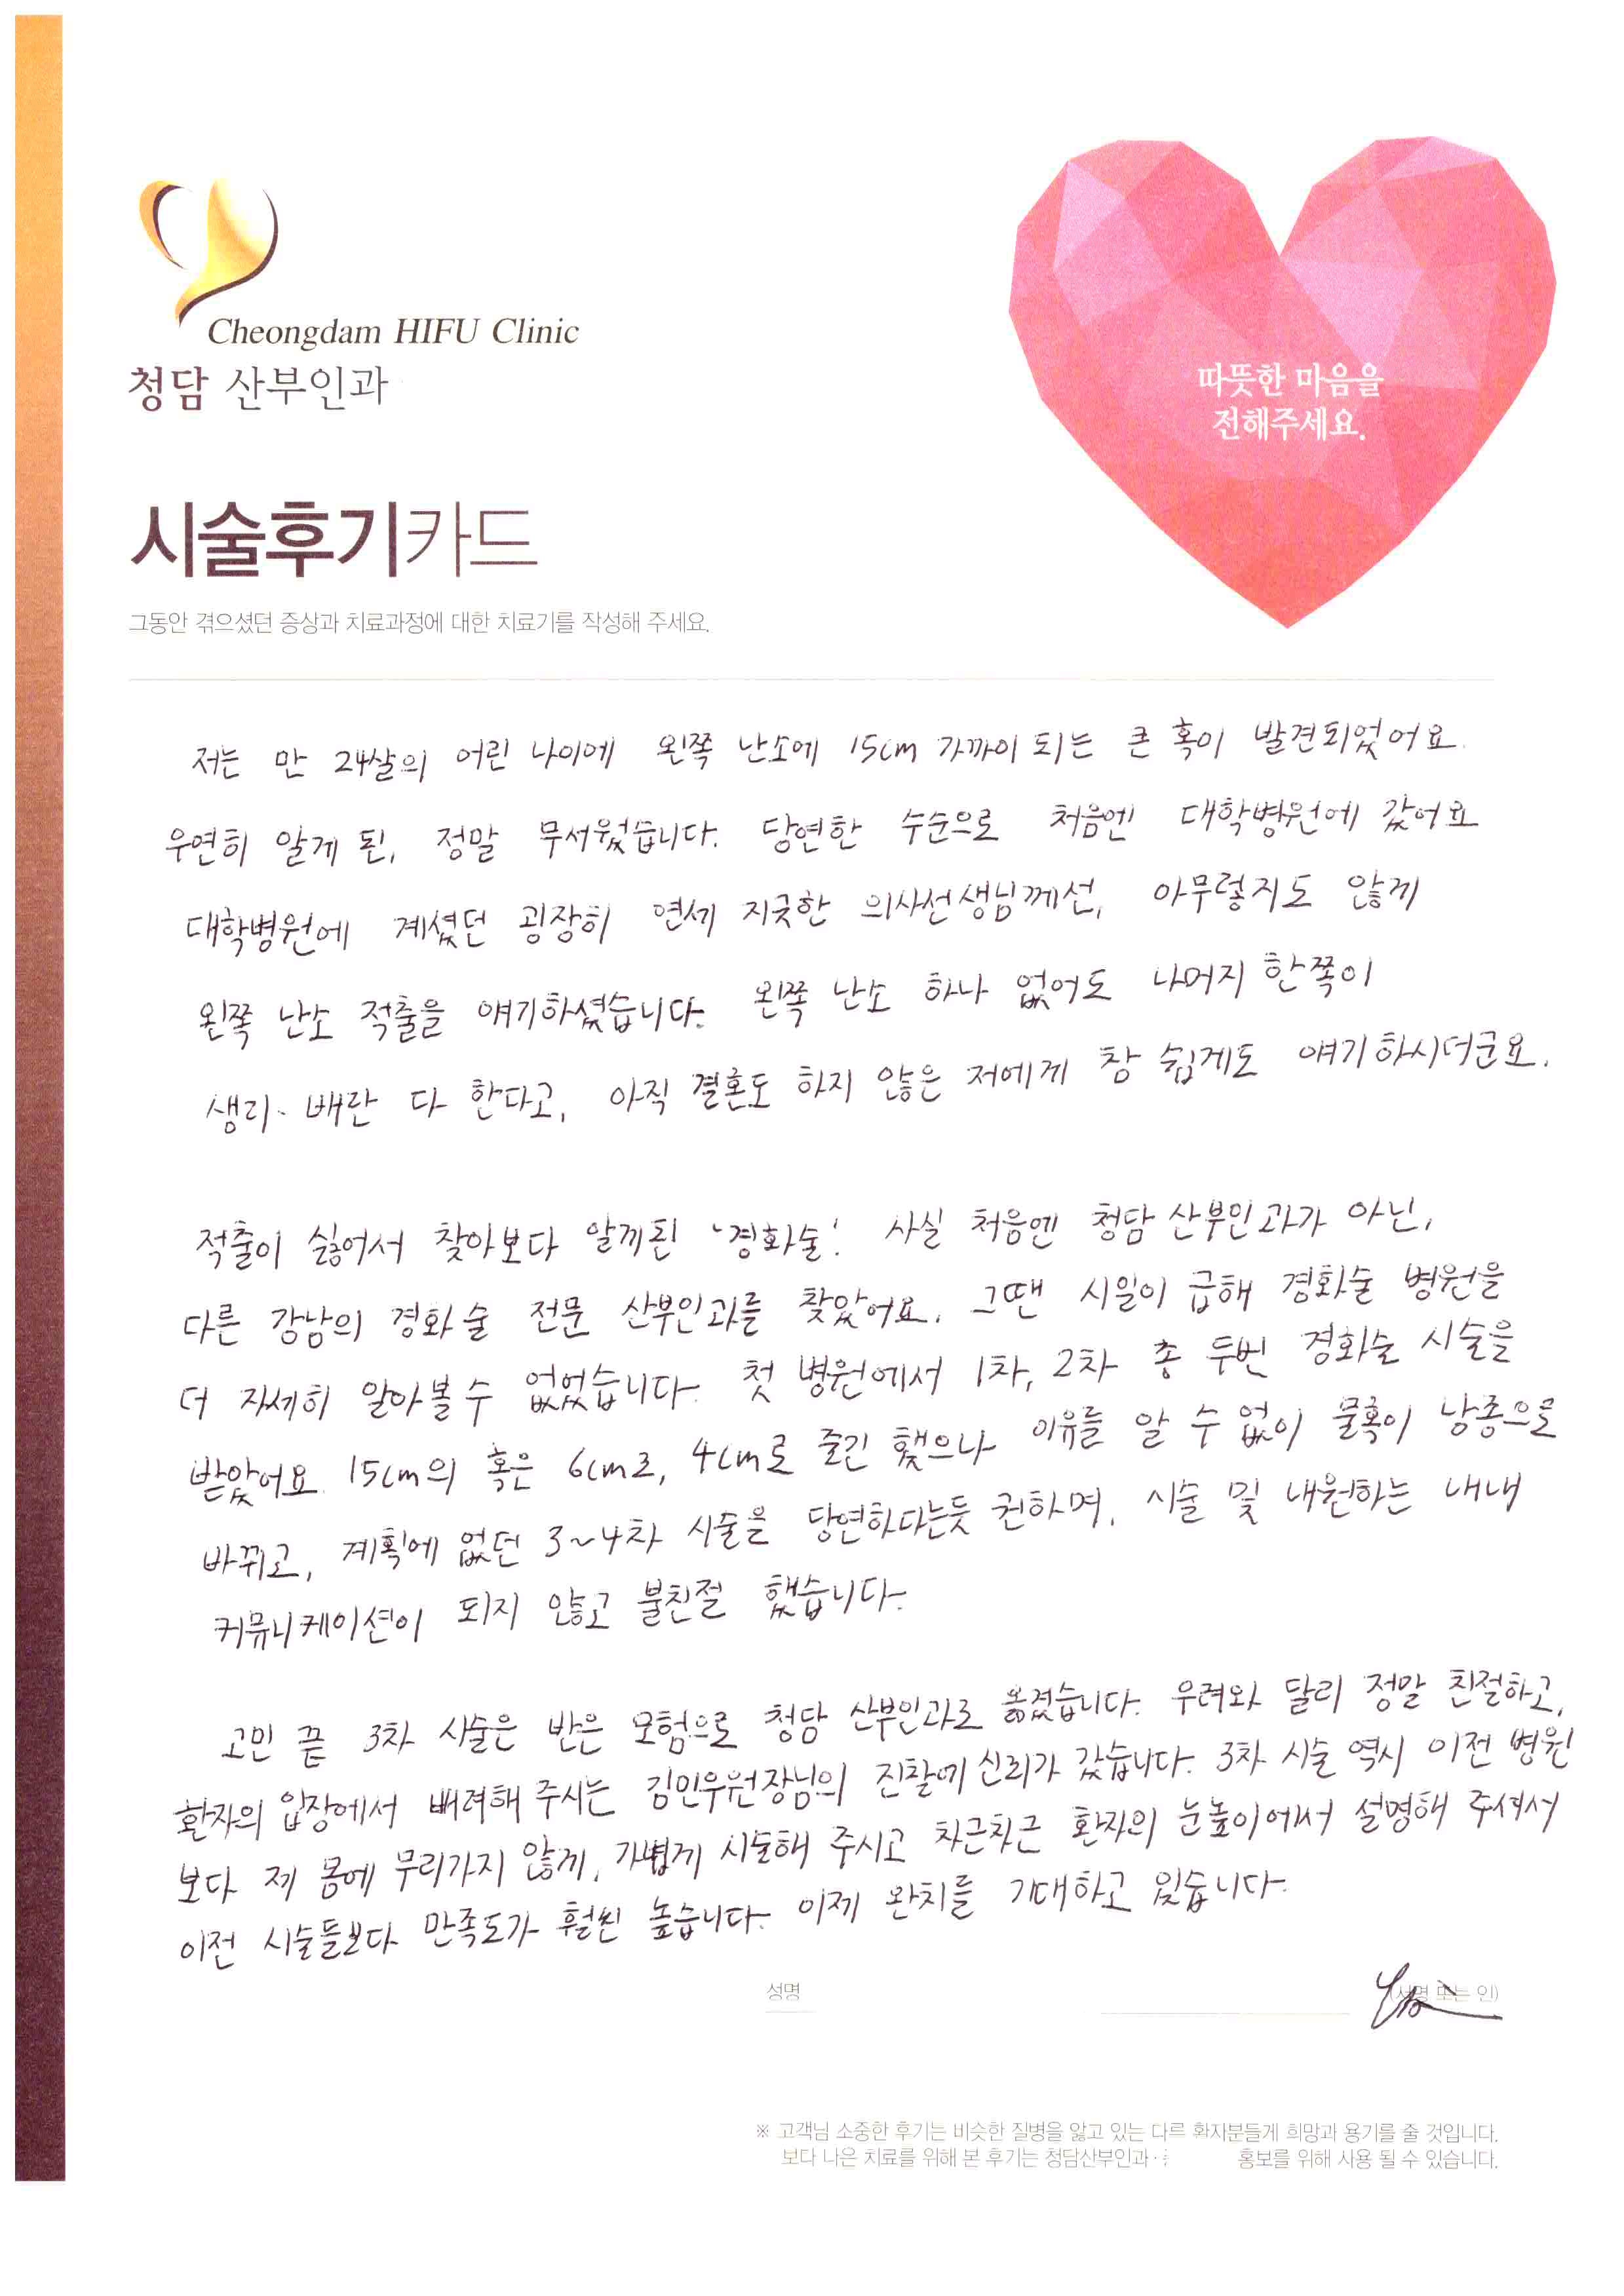 Cheongdam HIFU Clinic
청담 산부인과
따뜻한 마음을
전해주세요.
시술후기카드
그동안 겪으셨던 증상과 치료과정에 대한 치료기를 작성해 주세요.
저는 만 24살의 어린 나이에 왼쪽 난소에 15cm 가까이 되는 큰 혹이 발견되었어요.
우연히 알게 된, 정말 무서웠습니다. 당연한 수순으로 처음엔 대학병원에 갔어요
대학병원에 계셨던 굉장히 연세 지긋한 의사선생님께선, 아무렇지도 않게
왼쪽 난소 적출을 얘기하셨습니다. 왼쪽 난소 하나 없어도 나머지 한쪽이
생리·배란 다 한다고, 아직 결혼도 하지 않은 저에게 참 쉽게도 얘기하시더군요.
적출이 싫어서 찾아보다 알게된 '경화술'. 사실 처음엔 청담 산부인과가 아닌,
다른 강남의 경화술 전문 산부인과를 찾았어요. 그땐 시일이 급해 경화술 병원을
더 자세히 알아볼 수 없었습니다. 첫 병원에서 1차, 2차 총 두번 경화술 시술을
받았어요. 15cm의 혹은 6cm로, 4cm로 줄긴 했으나 이유를 알 수 없이 물혹이 낭종으로
바뀌고, 계획에 없던 3~4차 시술을 당연하다는듯 권하며, 시술 및 내원하는 내내
커뮤니케이션이 되지 않고 불친절 했습니다.
고민 끝 3차 시술은 반은 모험으로 청담 산부인과로 옮겼습니다. 우려와 달리 정말 친절하고,
환자의 입장에서 배려해 주시는 김민우원장님의 진찰에 신뢰가 갔습니다. 3차 시술 역시 이전 병원
보다 제 몸에 무리가지 않게, 가볍게 시술해 주시고 차근차근 환자의 눈높이에서 설명해 주셔서
이전 시술들보다 만족도가 훨씬 높습니다. 이제 완치를 기대하고 있습니다.
성명 (서명 또는 인)
※ 고객님 소중한 후기는 비슷한 질병을 앓고 있는 다르 환자분들게 희망과 용기를 줄 것입니다.
보다 나은 치료를 위해 본 후기는 청담산부인과· 홍보를 위해 사용 될 수 있습니다.